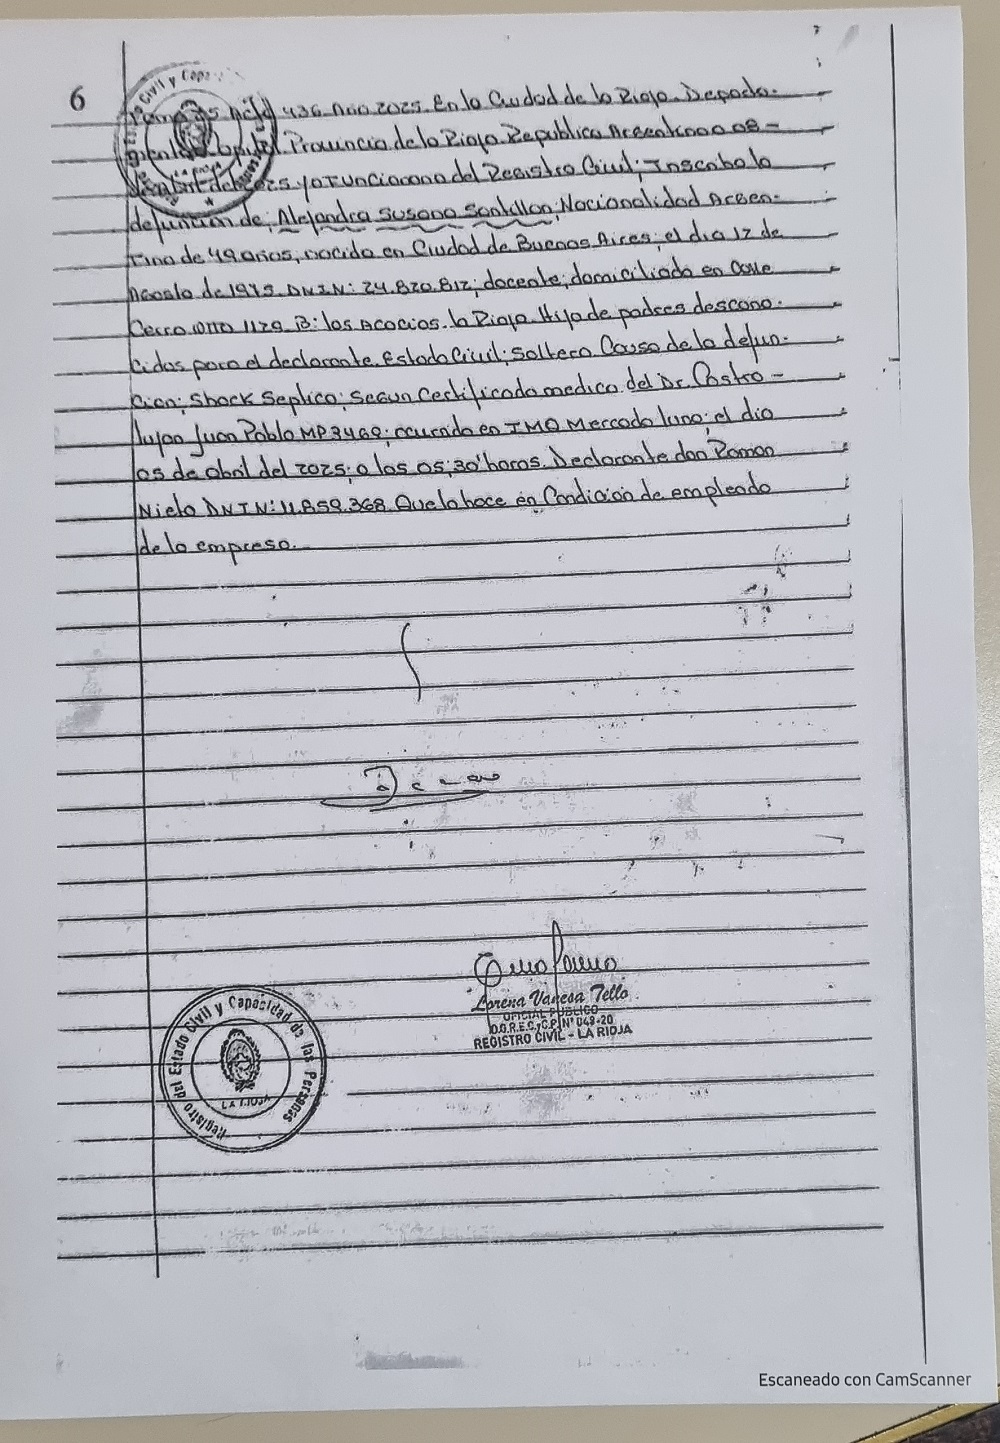 6
Tomo 35 Acta 436 Año 2025. En la Ciudad de la Rioja. Departa-
mento Capital. Provincia de la Rioja República Argentina a 08 -
de abril del 2025 yo Funcionario del Registro Civil; Inscribo la
defunción de; Alejandra Susana Santillan; Nacionalidad Argen-
tina de 49 años, nacida en Ciudad de Buenos Aires; el dia 12 de
Agosto de 1975. DNI N: 24.820.812; docente; domiciliada en Calle
Cerro Otto 1129 B: los Acacios. la Rioja. Hija de padres descono-
cidos para el declarante. Estado Civil; Soltera. Causa de la defun-
ción; Shock Septico; Segun Certificado medico del Dr. Castro -
Juan Pablo MP 3469; ocurrida en IMO Mercado luna; el dia
05 de abril del 2025; a las 05;30' horas. Declarante don Ramon
Nieto DNI N: 11.859.368. Que la hace en Condición de empleado
de la empresa.
Lorena Vanesa Tello
OFICIAL PUBLICO
D.G.R.E.C. y C.P. N° 049-20
REGISTRO CIVIL - LA RIOJA
Registro del Estado Civil y Capacidad de las Personas
LA RIOJA
Escaneado con CamScanner